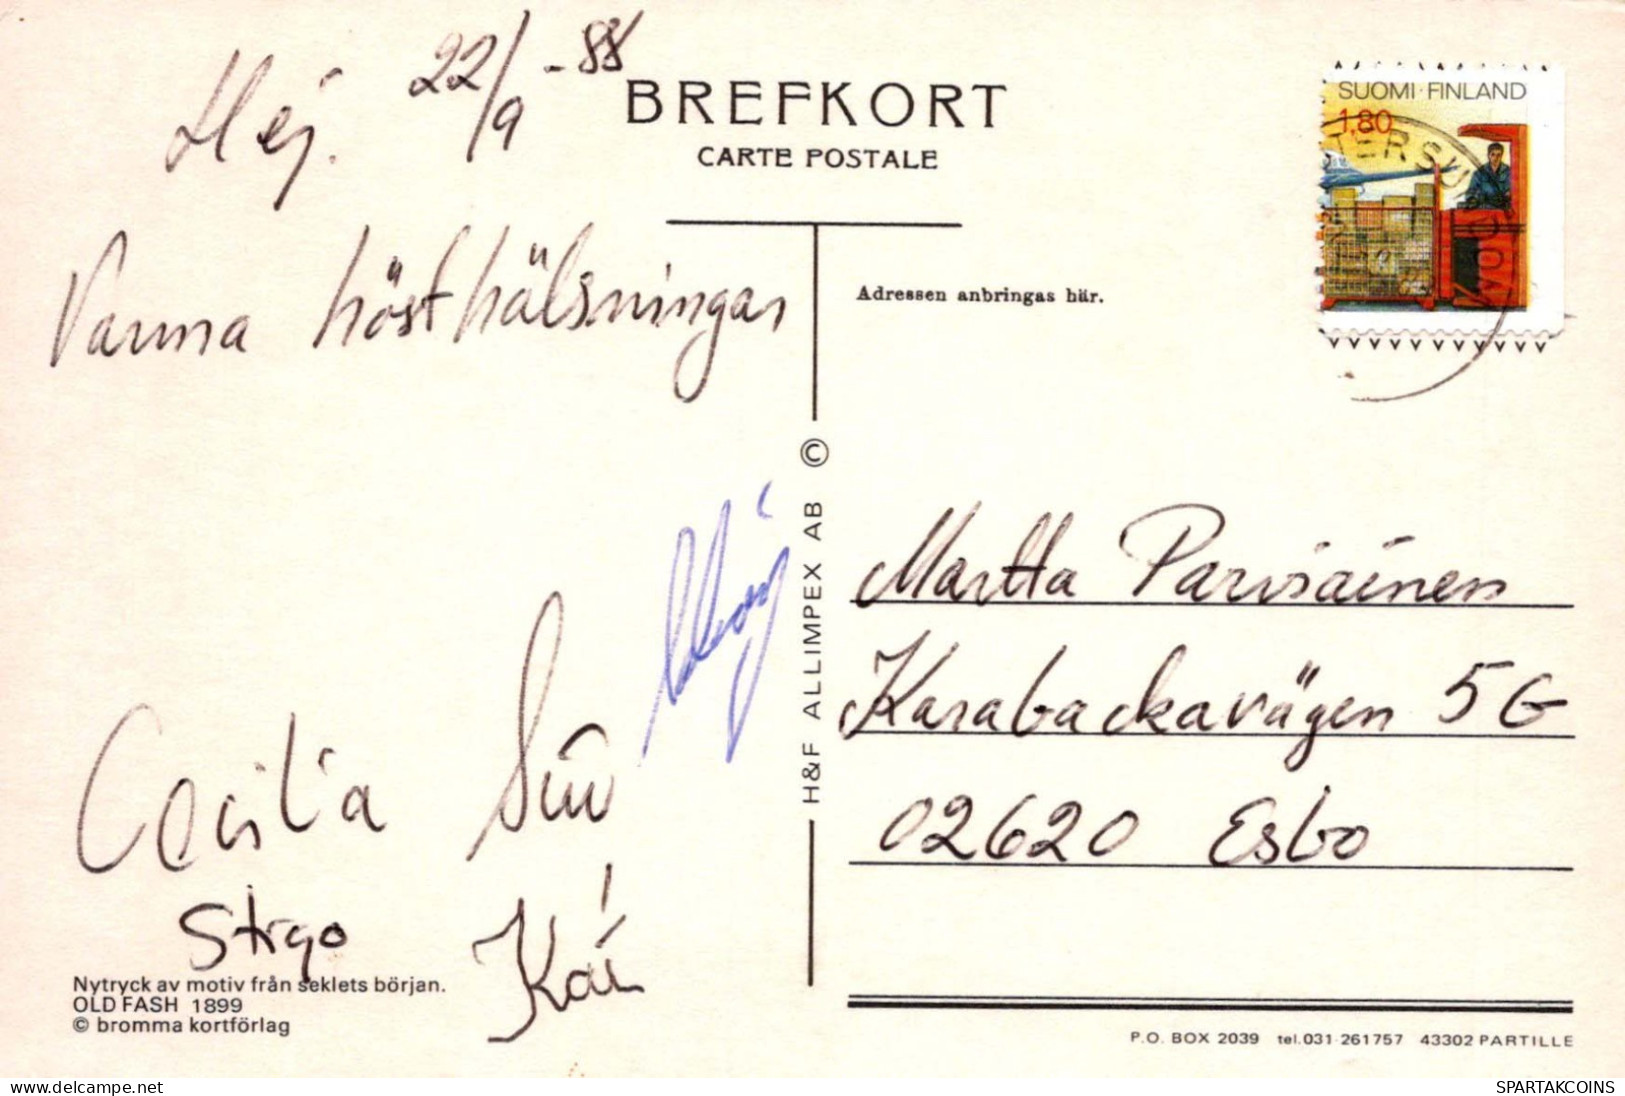 Hej. 22/9 - 88
BREFKORT
CARTE POSTALE
SUOMI·FINLAND
1,80
Varma hösthälsningar
Adressen anbringas här.
©
H&F ALLIMPEX AB
Martta Parviainen
Karabackavägen 5 G
02620 Esbo
Cecilia Siw
Stigo Kai
Nytryck av motiv från seklets början.
OLD FASH 1899
© bromma kortförlag
P.O. BOX 2039 tel.031-261757 43302 PARTILLE
delcampe.net
SPARTAKCOINS